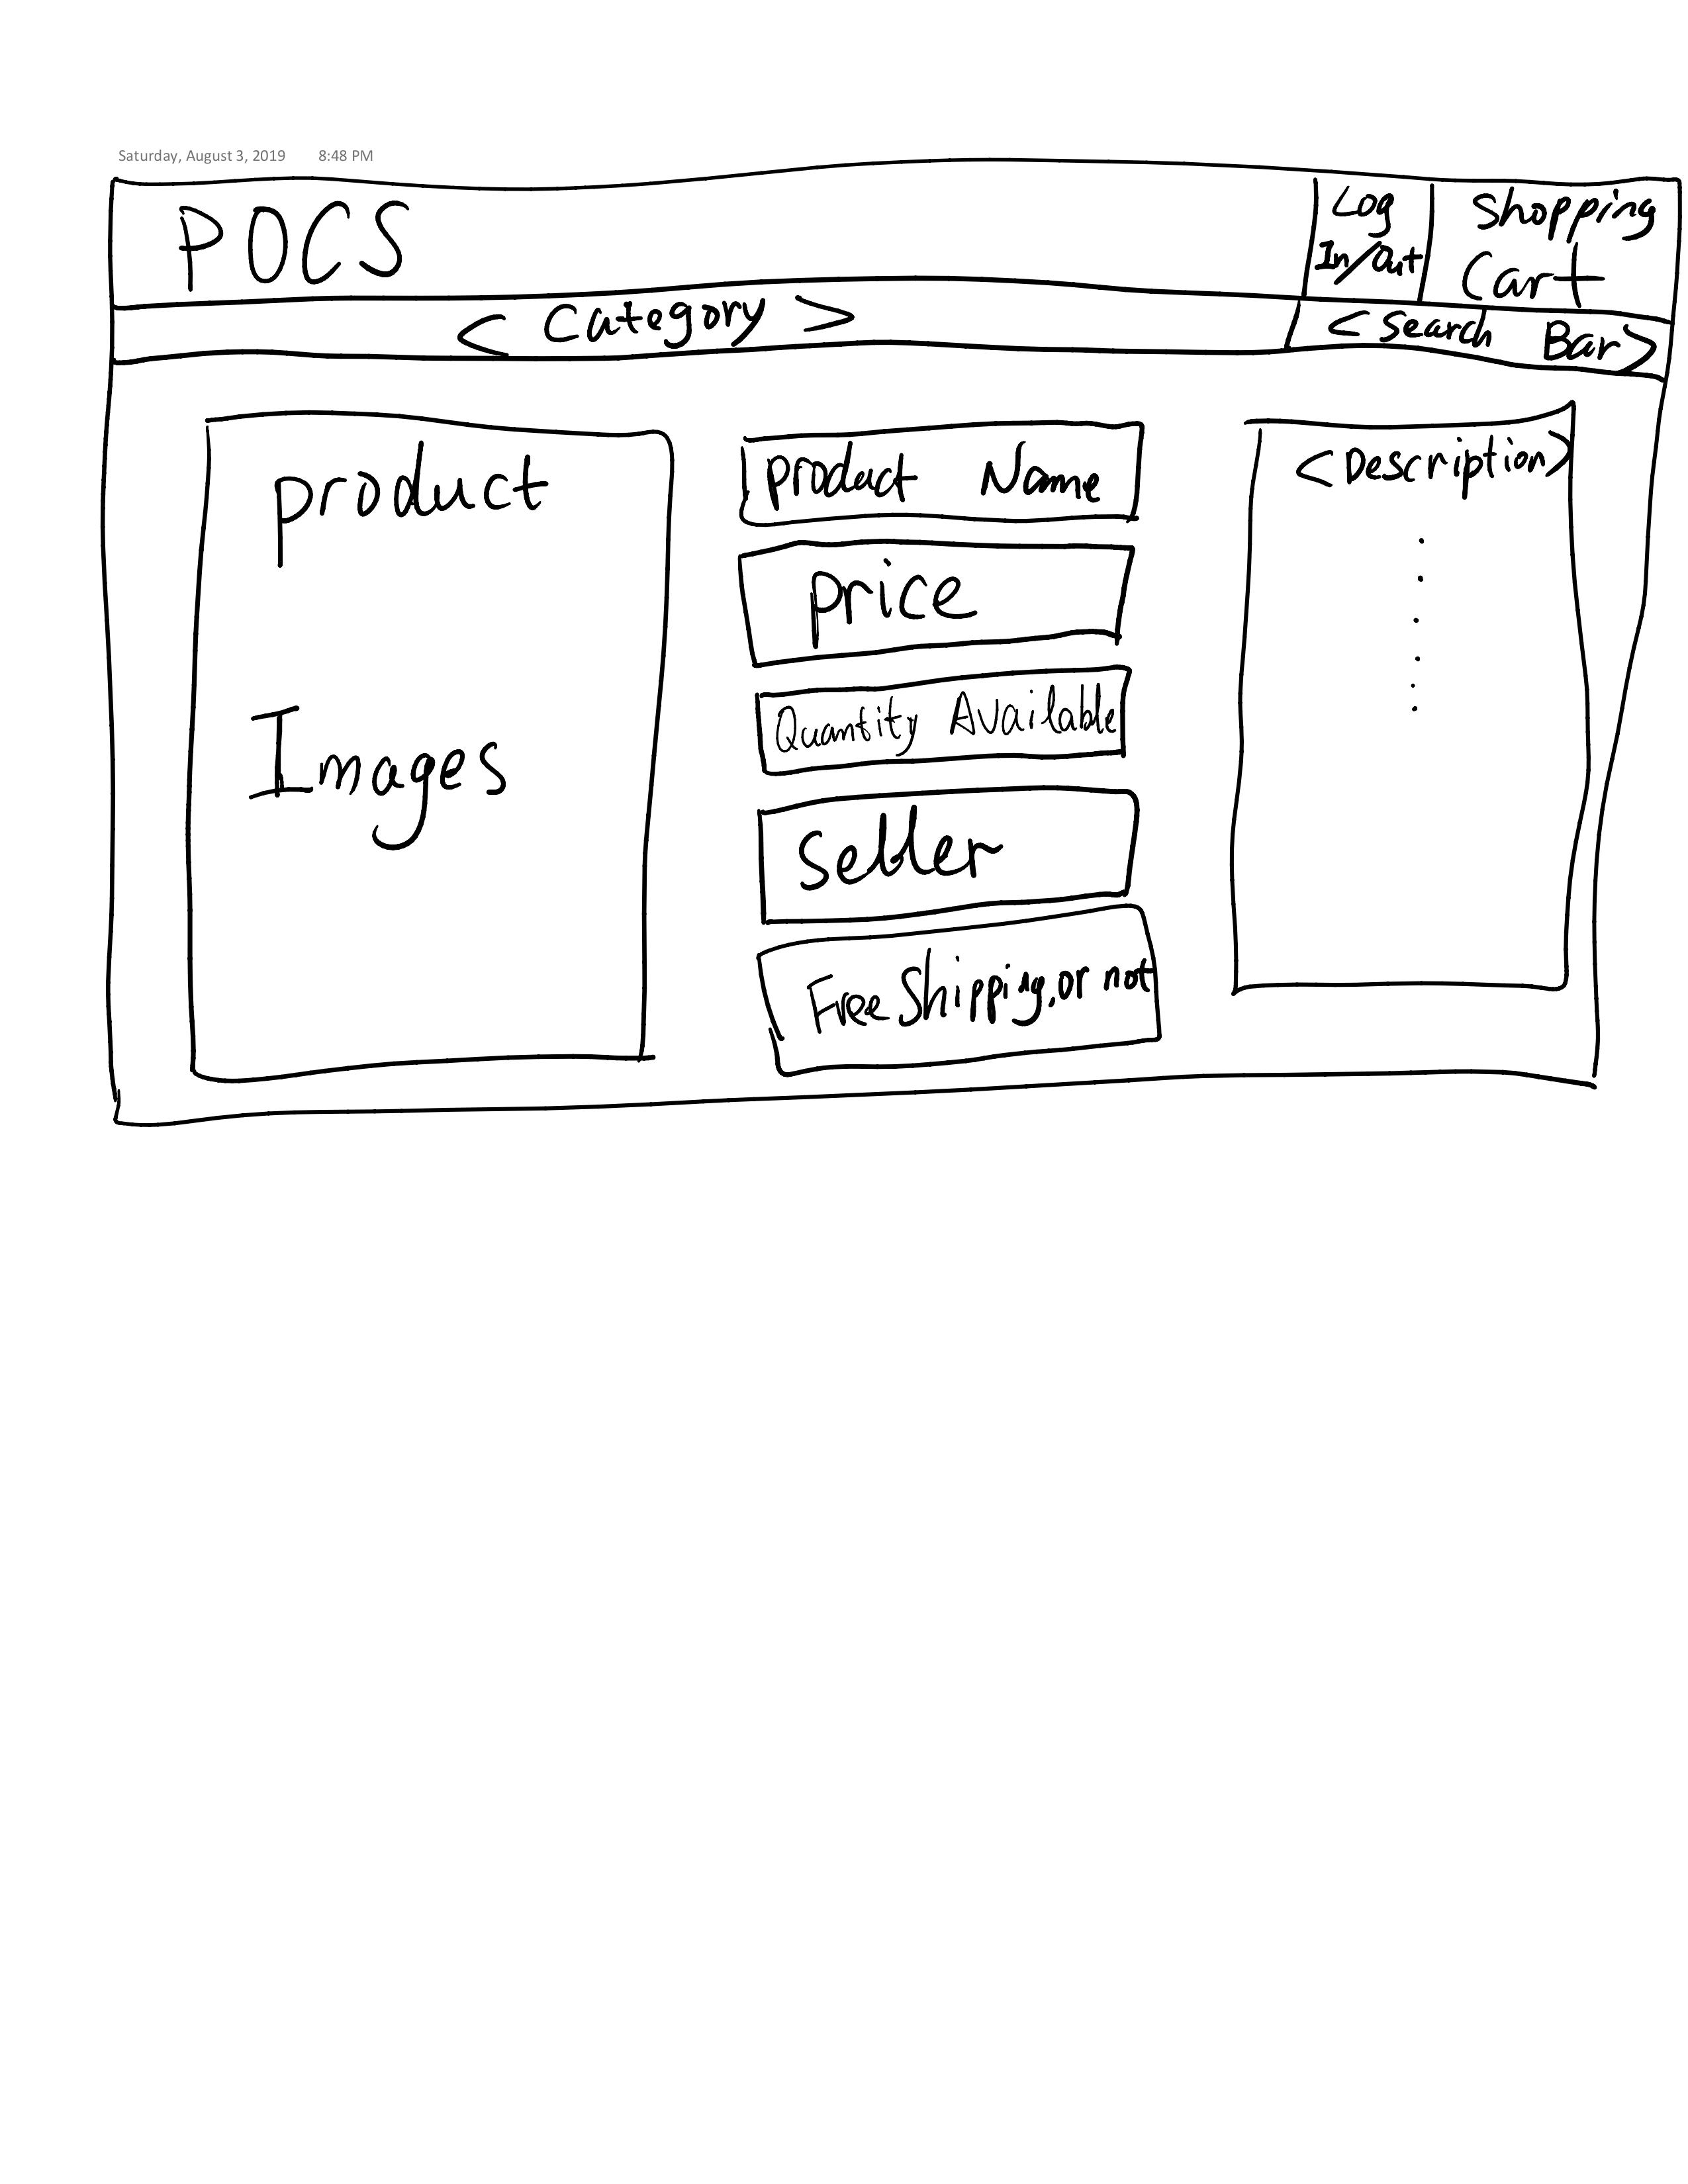 Saturday, August 3, 2019 8:48 PM
POCS
Log
In/Out
Shopping
Cart
< Category >
< Search Bar>
product
Images
product Name
price
Quantity Available
Seller
Free Shipping, or not
<Description>